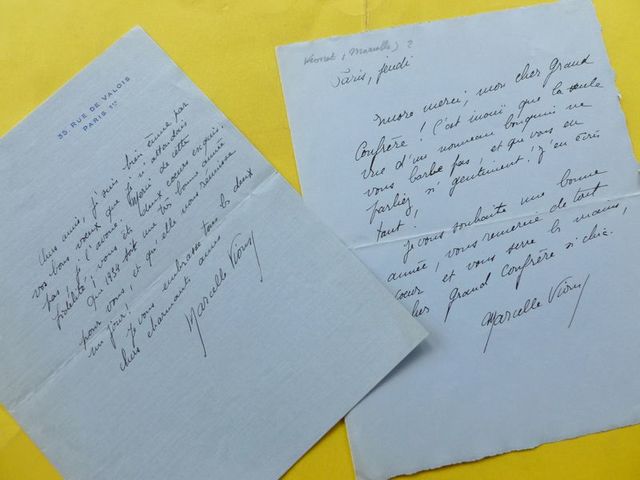 35 RUE DE VALOIS
PARIS 1er
Chers amis, je suis bien émue par
vos bons vœux que je n'attendais
pas, je l'avoue. Merci de cette
fidélité, vous êtes deux cœurs exquis.
Que 1934 soit une très bonne année
pour vous, et qu'elle nous réunisse
un jour!
Je vous embrasse tous les deux
chers charmants amis
Marcelle Vioux
(Vernet, Marcelle) ?
Paris, jeudi
Encore merci, mon cher Grand
Confrère! C'est inouï que la seule
vue d'un nouveau bouquin ne
vous barbe pas, et que vous en
parliez si gentiment! J'en écris
tant!
Je vous souhaite une bonne
année, vous remercie de tout
cœur et vous serre les mains,
cher grand Confrère si chic.
Marcelle Vioux